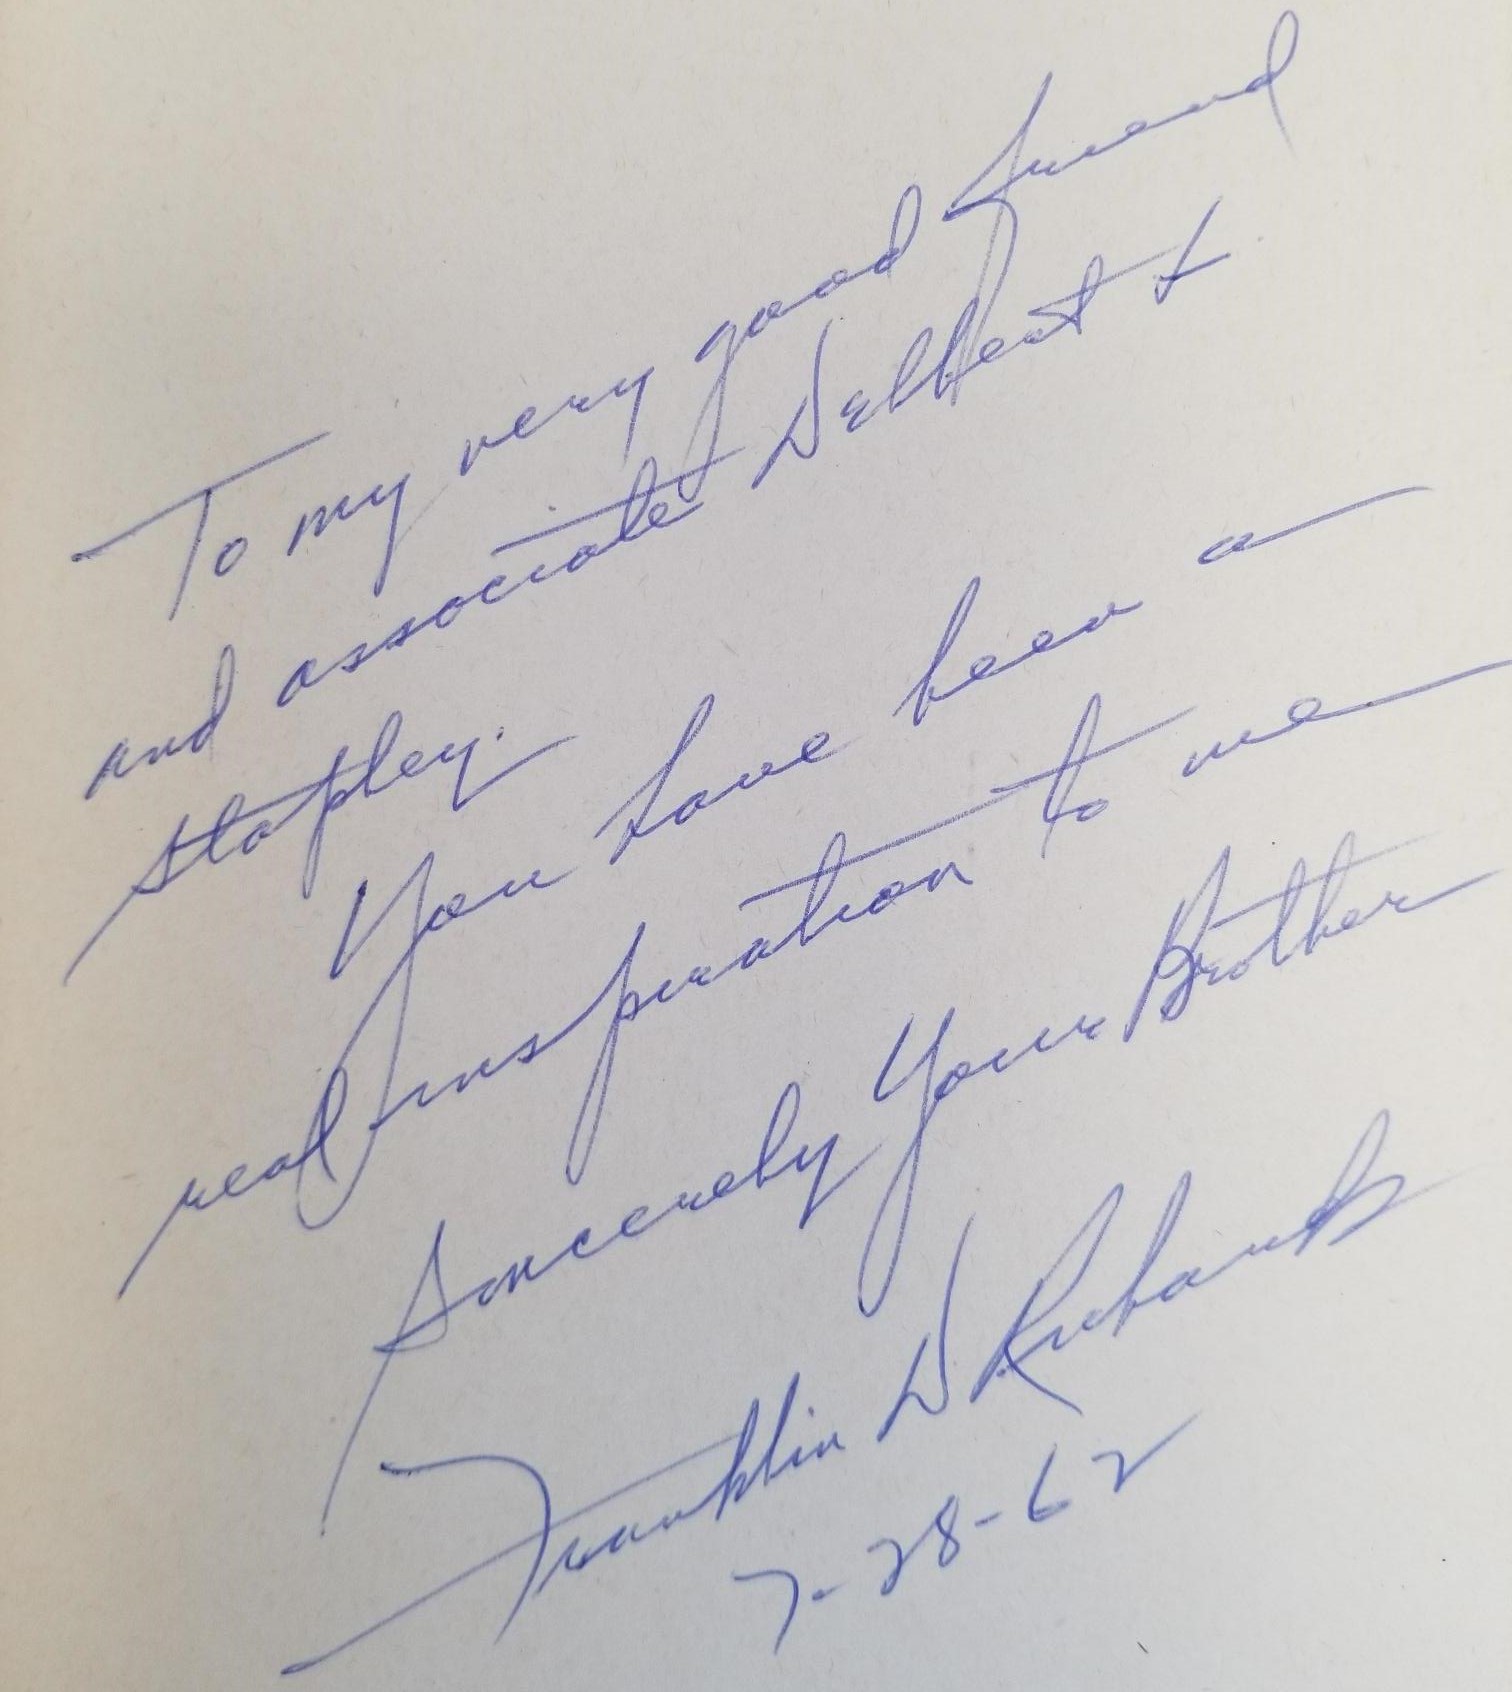 To my very good friend
and associate Delbert L
Stapley.
You have been a
real inspiration to me
Sincerely Your Brother
Franklin D Richards
7-28-62